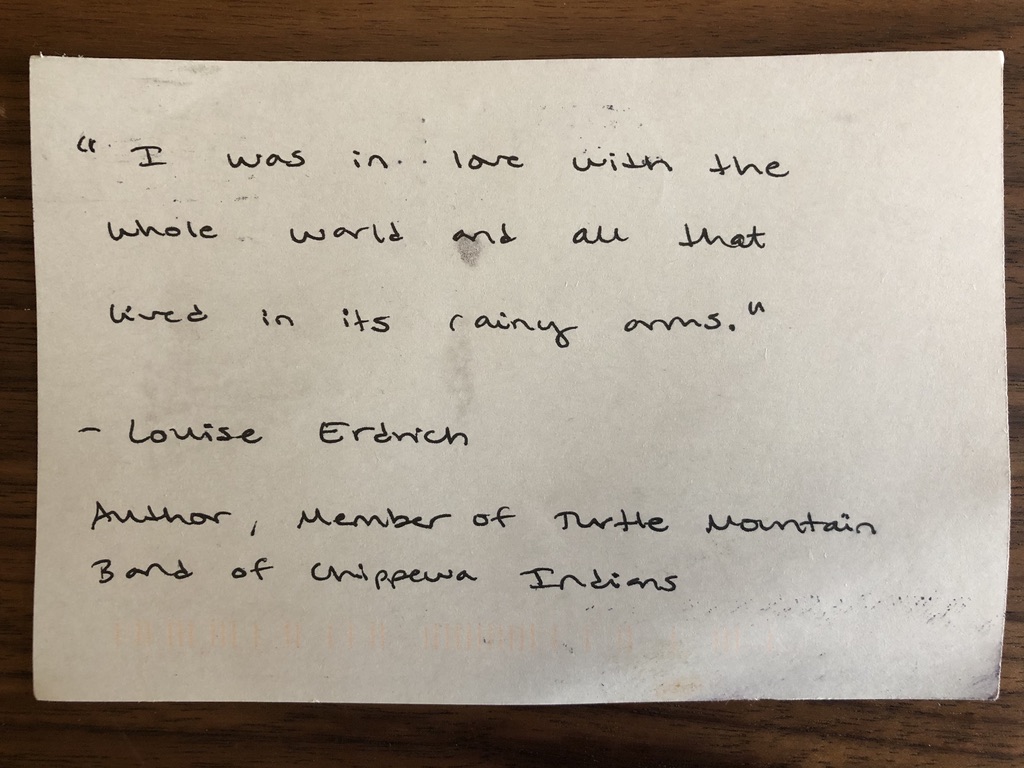 "I was in love with the
whole world and all that
lived in its rainy arms."
- Louise Erdrich
Author, Member of Turtle Mountain
Band of Chippewa Indians